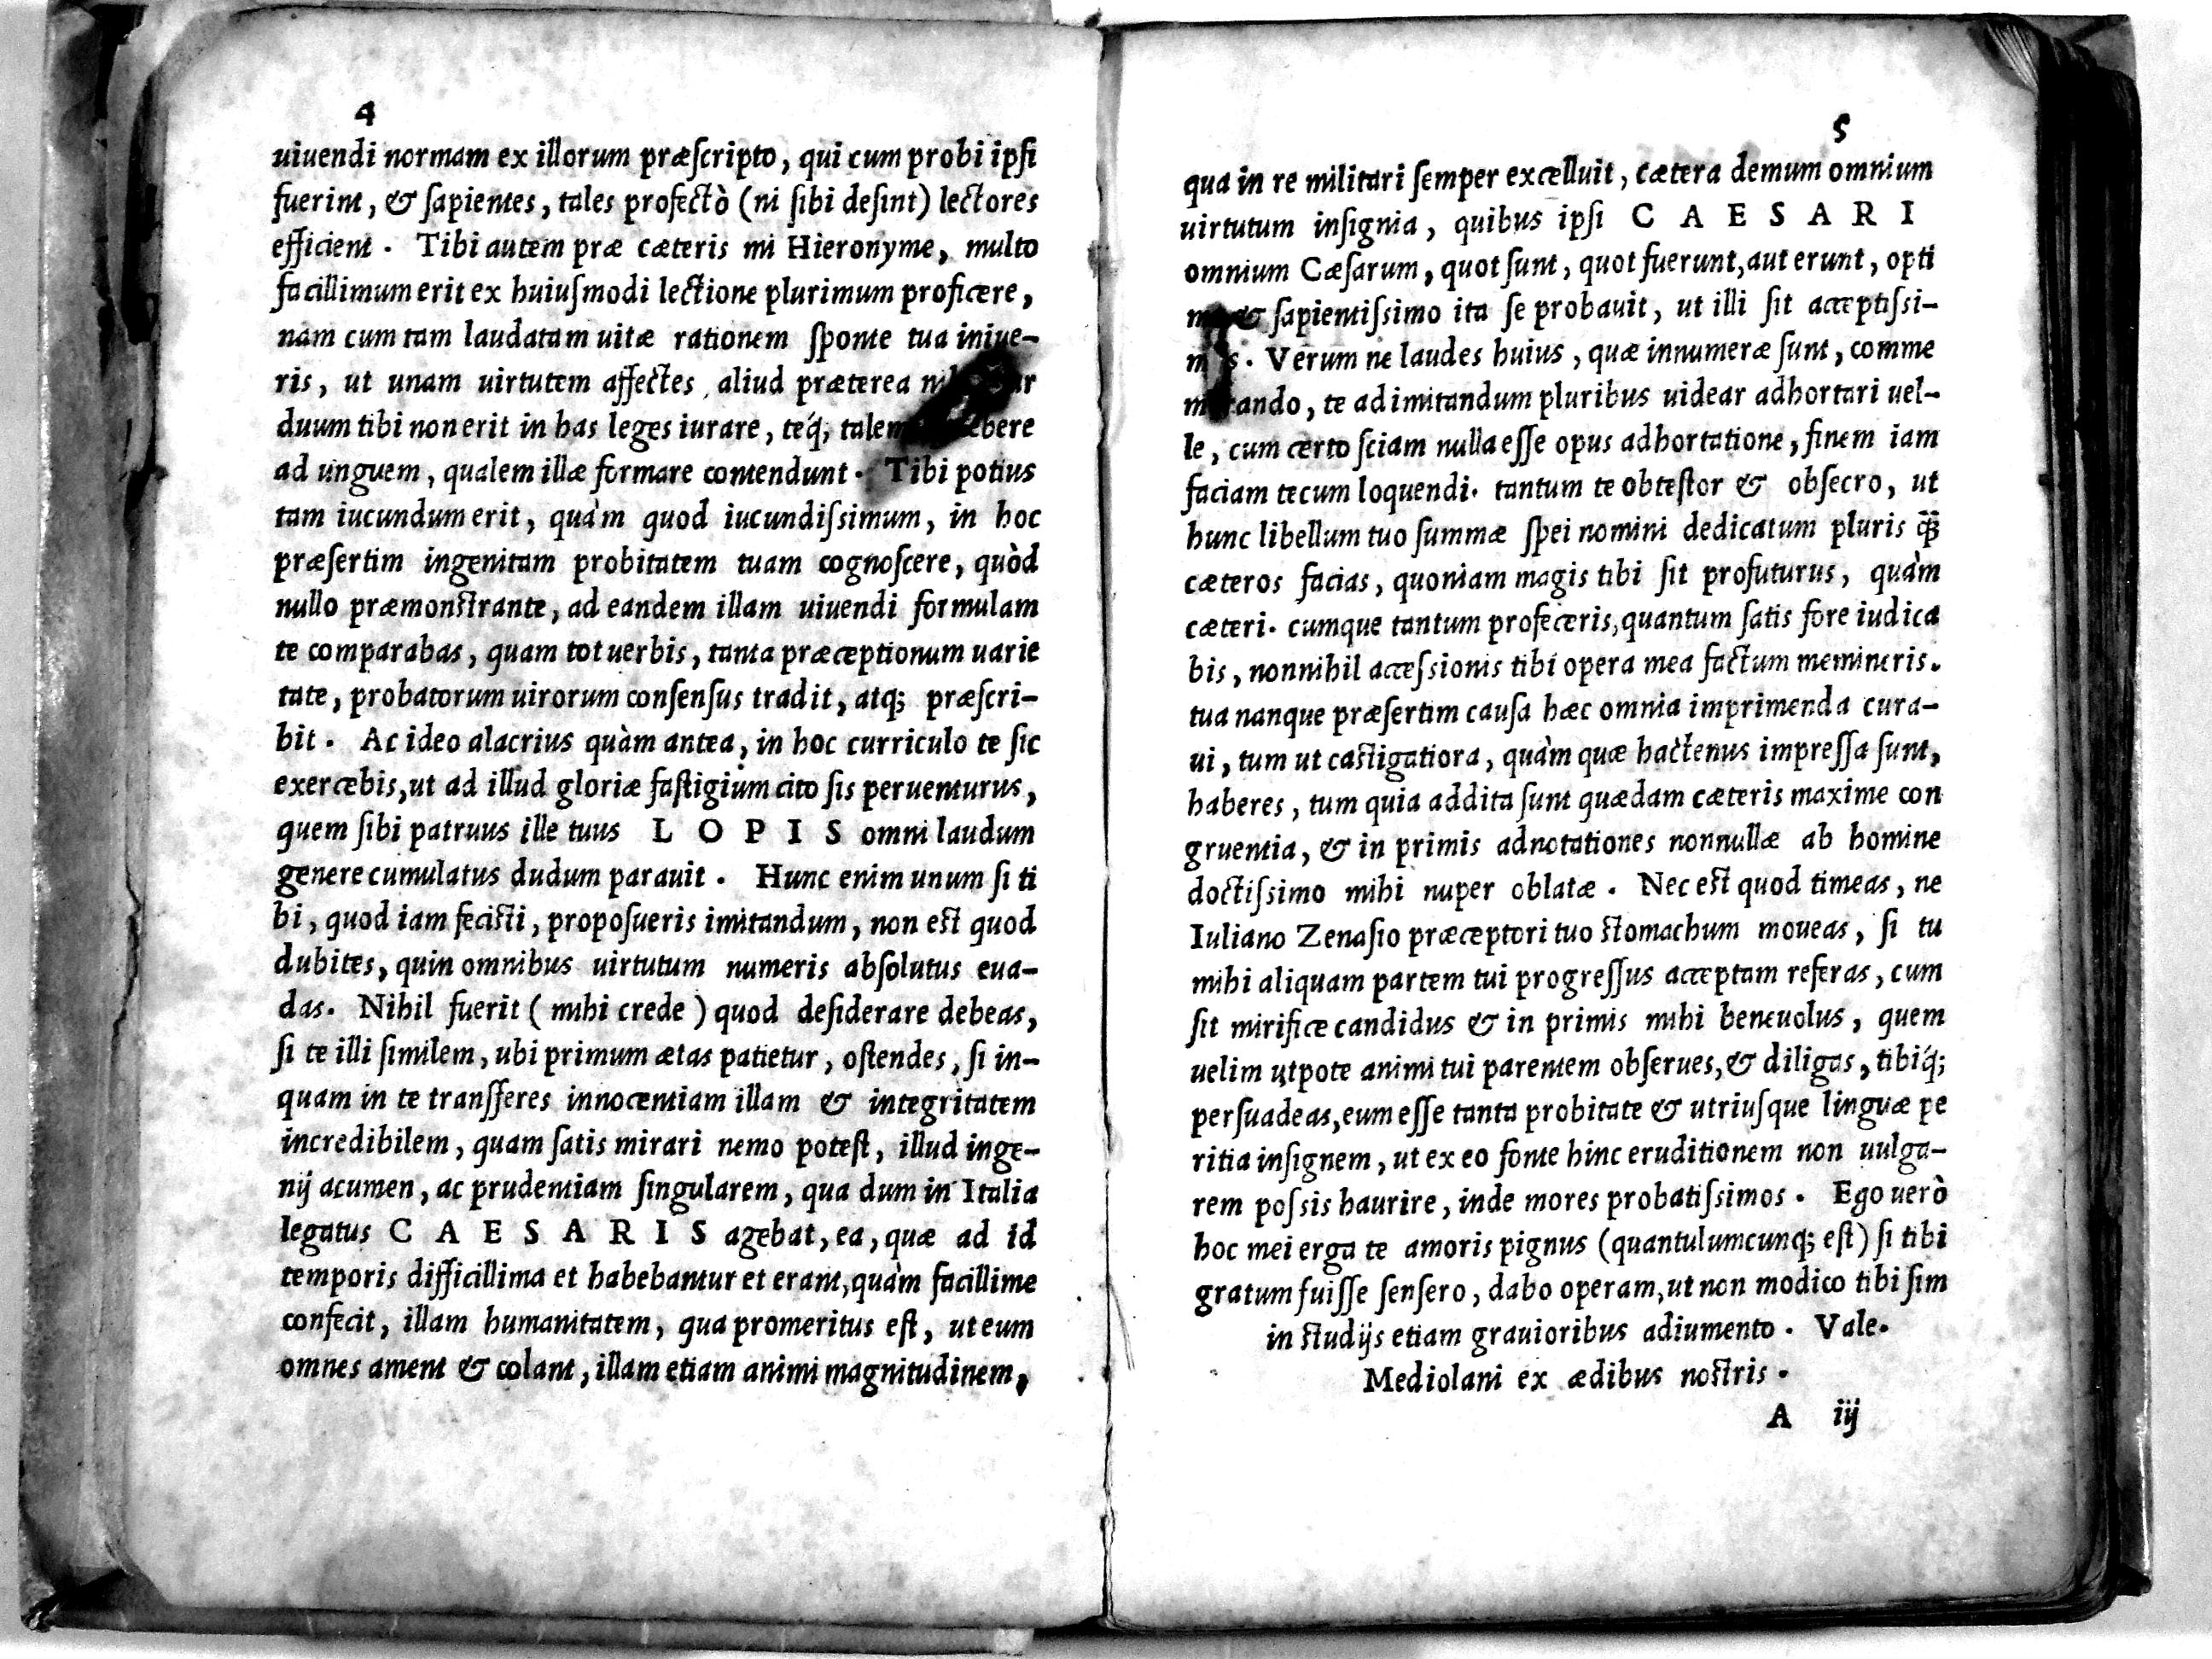 4
uiuendi normam ex illorum præſcripto, qui cum probi ipſi
fuerint, & ſapientes, tales profectò (ni ſibi deſint) lectores
efficient. Tibi autem præ cæteris mi Hieronyme, multo
facillimum erit ex huiuſmodi lectione plurimum proficere,
nam cum tam laudatam uitæ rationem ſponte tua iniue-
ris, ut unam uirtutem affectes, aliud præterea
duum tibi non erit in has leges iurare, teq́;
ad unguem, qualem illæ formare contendunt. Tibi potius
tam iucundum erit, quàm quod iucundiſsimum, in hoc
præſertim ingenitam probitatem tuam cognoſcere, quòd
nullo præmonſtrante, ad eandem illam uiuendi formulam
te comparabas, quam tot uerbis, tanta præceptionum uarie
tate, probatorum uirorum conſenſus tradit, atq; præſcri-
bit. Ac ideo alacrius quàm antea, in hoc curriculo te ſic
exercebis, ut ad illud gloriæ faſtigium cito ſis peruenturus,
quem ſibi patruus ille tuus L O P I S omni laudum
genere cumulatus dudum parauit. Hunc enim unum ſi ti
bi, quod iam feciſti, propoſueris imitandum, non eſt quod
dubites, quin omnibus uirtutum numeris abſolutus eua-
das. Nihil fuerit (mihi crede) quod deſiderare debeas,
ſi te illi ſimilem, ubi primum ætas patietur, oſtendes, ſi in-
quam in te tranſferes innocentiam illam & integritatem
incredibilem, quam ſatis mirari nemo poteſt, illud inge-
nij acumen, ac prudentiam ſingularem, qua dum in Italia
legatus C A E S A R I S agebat, ea, quæ ad id
temporis difficillima et habebantur et erant, quàm facillime
confecit, illam humanitatem, qua promeritus eſt, ut eum
omnes ament & colant, illam etiam animi magnitudinem,
5
qua in re militari ſemper excelluit, cætera demum omnium
uirtutum inſignia, quibus ipſi C A E S A R I
omnium Cæſarum, quot ſunt, quot fuerunt, aut erunt, opti
& ſapientiſsimo ita ſe probauit, ut illi ſit acceptiſsi-
Verum ne laudes huius, quæ innumeræ ſunt, comme
te ad imitandum pluribus uidear adhortari uel-
le, cum certo ſciam nulla eſſe opus adhortatione, finem iam
faciam tecum loquendi. tantum te obteſtor & obſecro, ut
hunc libellum tuo ſummæ ſpei nomini dedicatum pluris
cæteros facias, quoniam magis tibi ſit profuturus, quàm
cæteri. cumque tantum profeceris, quantum ſatis fore iudica
bis, nonnihil acceſsionis tibi opera mea factum memineris.
tua nanque præſertim cauſa hæc omnia imprimenda cura-
ui, tum ut caſtigatiora, quàm quæ hactenus impreſſa ſunt,
haberes, tum quia addita ſunt quædam cæteris maxime con
gruentia, & in primis adnotationes nonnullæ ab homine
doctiſsimo mihi nuper oblatæ. Nec eſt quod timeas, ne
Iuliano Zenaſio præceptori tuo ſtomachum moueas, ſi tu
mihi aliquam partem tui progreſſus acceptam referas, cum
ſit mirifice candidus & in primis mihi beneuolus, quem
uelim utpote animi tui parentem obſerues, & diligas, tibiq́;
perſuadeas, eum eſſe tanta probitate & utriuſque linguæ pe
ritia inſignem, ut ex eo fonte hinc eruditionem non uulga-
rem poſsis haurire, inde mores probatiſsimos. Ego uerò
hoc mei erga te amoris pignus (quantulumcunq; eſt) ſi tibi
gratum fuiſſe ſenſero, dabo operam, ut non modico tibi ſim
in ſtudijs etiam grauioribus adiumento. Vale.
Mediolani ex ædibus noſtris.
A iij